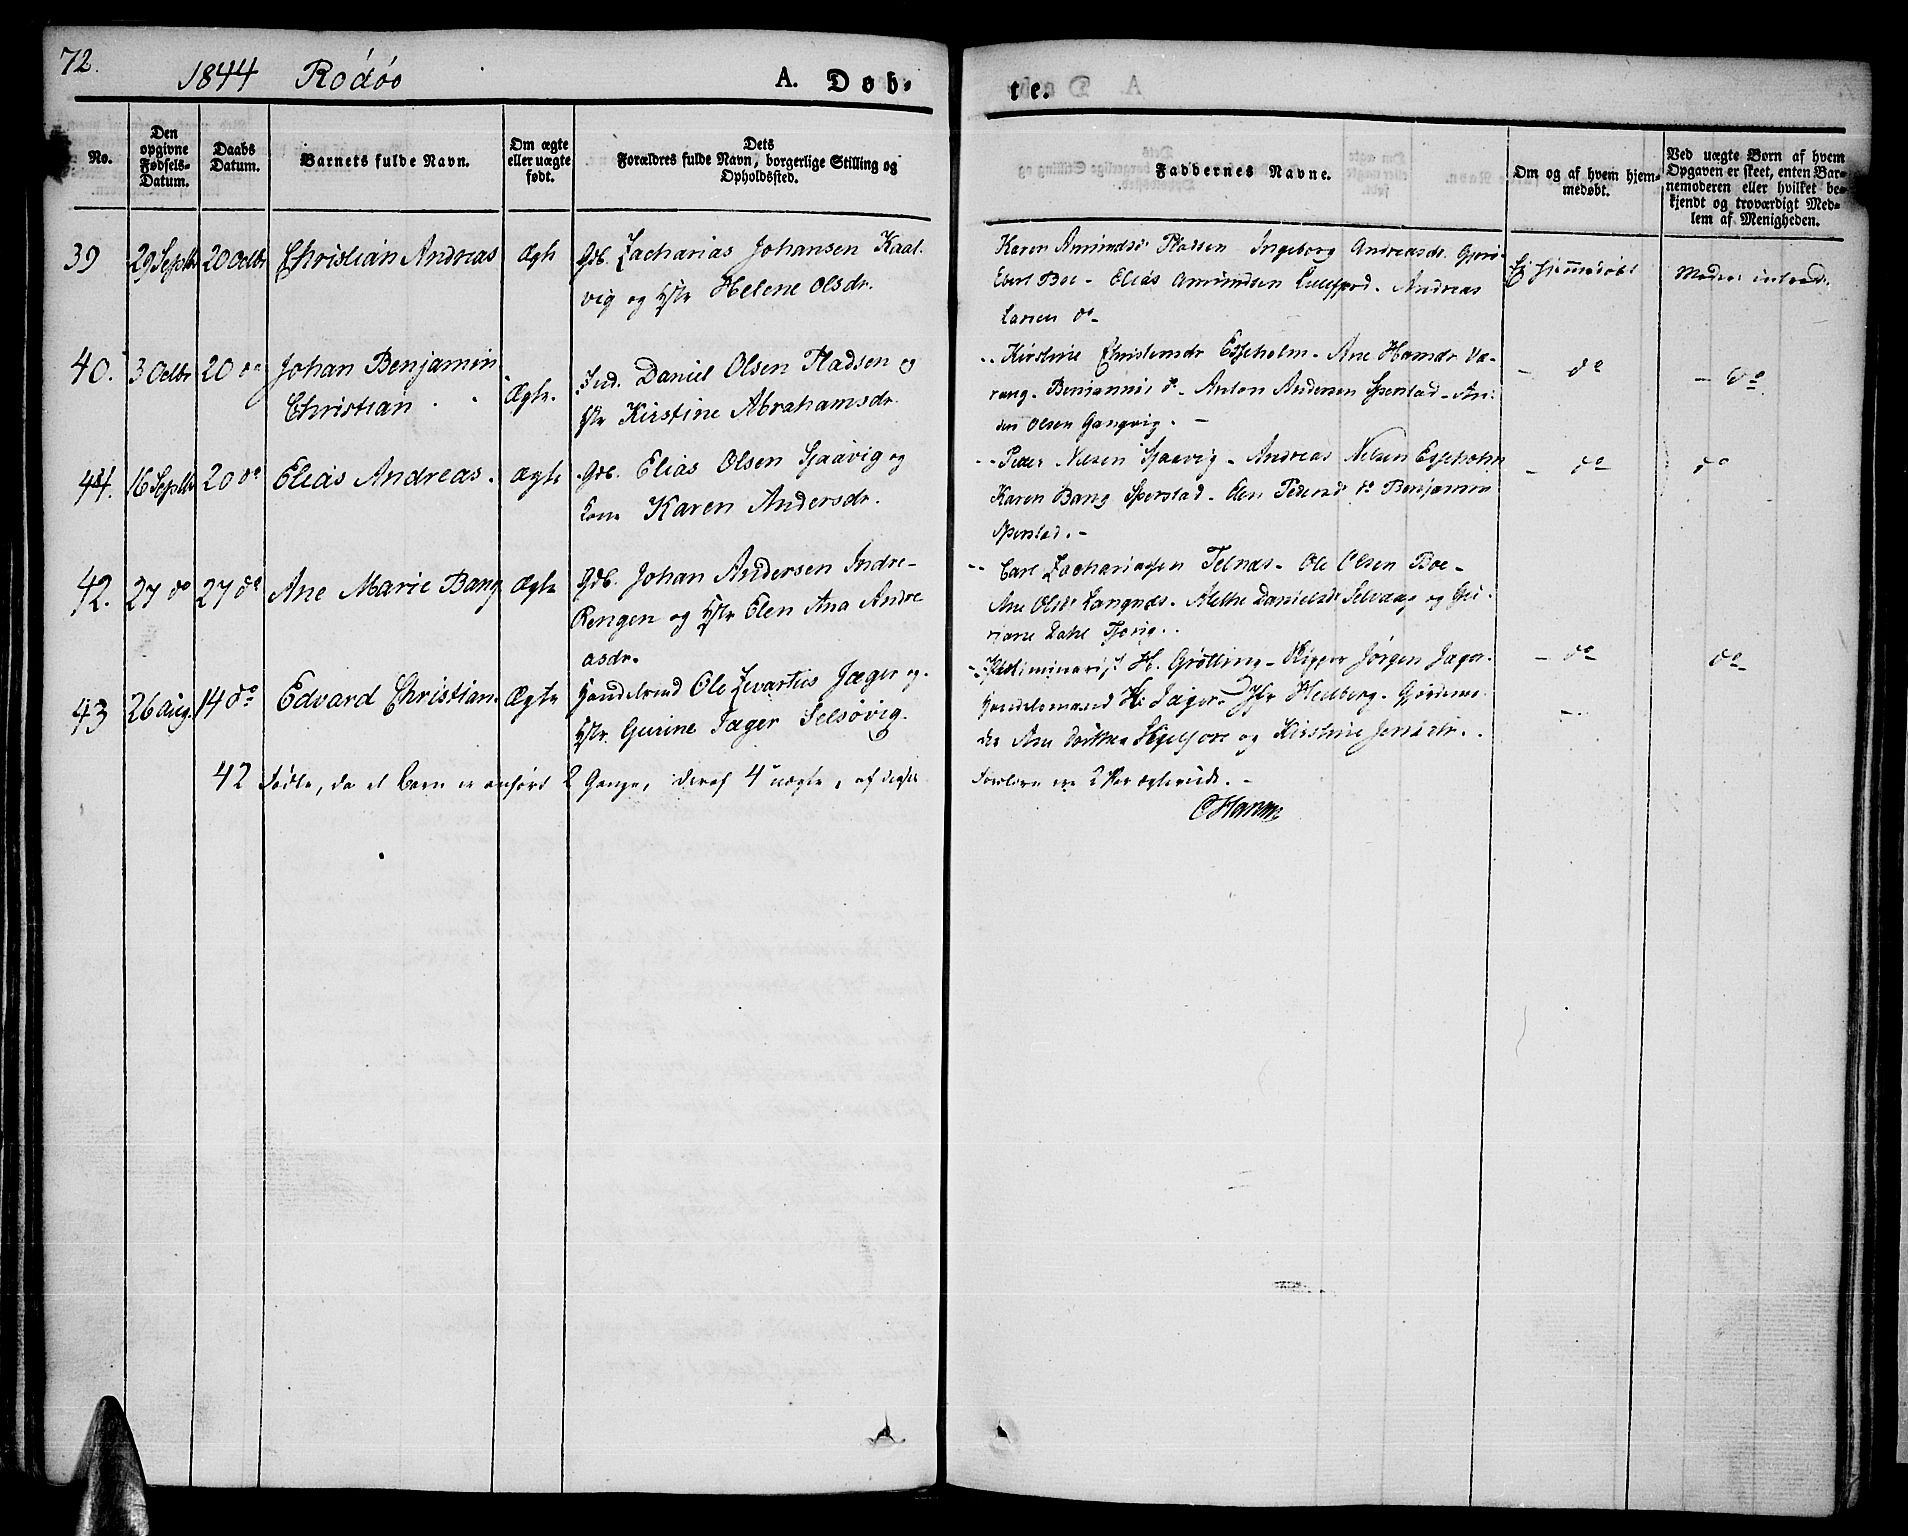 72.
1844 Rodøe
A. Døb-
te.
No.
Den opgivne Fødsels-Datum.
Daabs Datum.
Barnets fulde Navn.
Om ægte eller uægte født.
Dets Forældres fulde Navn, borgerlige Stilling og Opholdssted.
Faddernes Navne.
Om og af hvem hjem-medøbt.
Ved uægte Børn af hvem Opgaven er skeet, enten Bar-nemoderen eller hvilket be-kjendt og troværdigt Med-lem af Menigheden.
39 29 Septbr 20 Octbr Christian Andreas Ægte Gdb. Zacharias Johansen Kaal-
vig og Hstr Helene Olsdr.
Karen Amundsd. Pladsen Ingeborg Andreasdr.
Ebert Boe - Elias Amundsen - Andreas
Larsen do
Ej hjemmedøbt
40. 3 Octbr 20 do Johan Benjamin
Christian Ægte. Ind. Daniel Olsen Pladsen og
Hstr Kirstine Abrahamsdr.
Kirstine Christensdr Esseholm - Ane Hansdr Væ-
rang - Benjamin do - Anton Andersen Sperstad - An-
ders Olsen Gangvig. -
- do
- do
41. 16 Septbr 20 do Elias Andreas. Ægte Gdb. Elias Olsen Sjaavig og
Kone Karen Andersdr.
Peder Nielsen Sjaavig - Andreas Nielsen Esseholm
Karen Bang Sperstad - Elen Pedersd do Benjamin
Sperstad. -
- do
do
42. 27 do 27 do Ane Marie Bang Ægte Gdb. Johan Andersen Indre-
Rengen og Hstr Elen Ana Andre
asdr.
Carl Zachariassen Telnæs - Ole Olsen Boe -
Ane Olsdr Langnæs - Danielsdr Selvaag og Gu-
riane Dahl
- do
do
43 26 Aug. 14 do Edvard Christian. Ægte Handelsmd Ole Zwartius Jæger og
Hstr. Gurine Jæger Selsøvig.
H. Grøtting - Skipper Jørgen Jæger -
Handelsmand H. Jæger - Hedberg -
Ane Dorthea og Kirstine Jensdr.
42 Fødte, da et Barn er anført 2 Gange, deraf 4 uægte, af disses
Forældre ere 2 Par
C Hansen